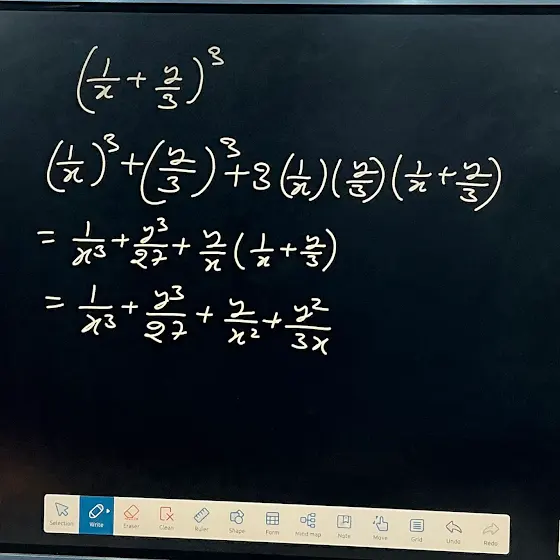 (1/x + y/3)³
(1/x)³ + (y/3)³ + 3(1/x)(y/3)(1/x + y/3)
= 1/x³ + y³/27 + y/x(1/x + y/3)
= 1/x³ + y³/27 + y/x² + y²/3x
Selection Write Eraser Clean Ruler Shape Form Mind map Note Move Grid Undo Redo